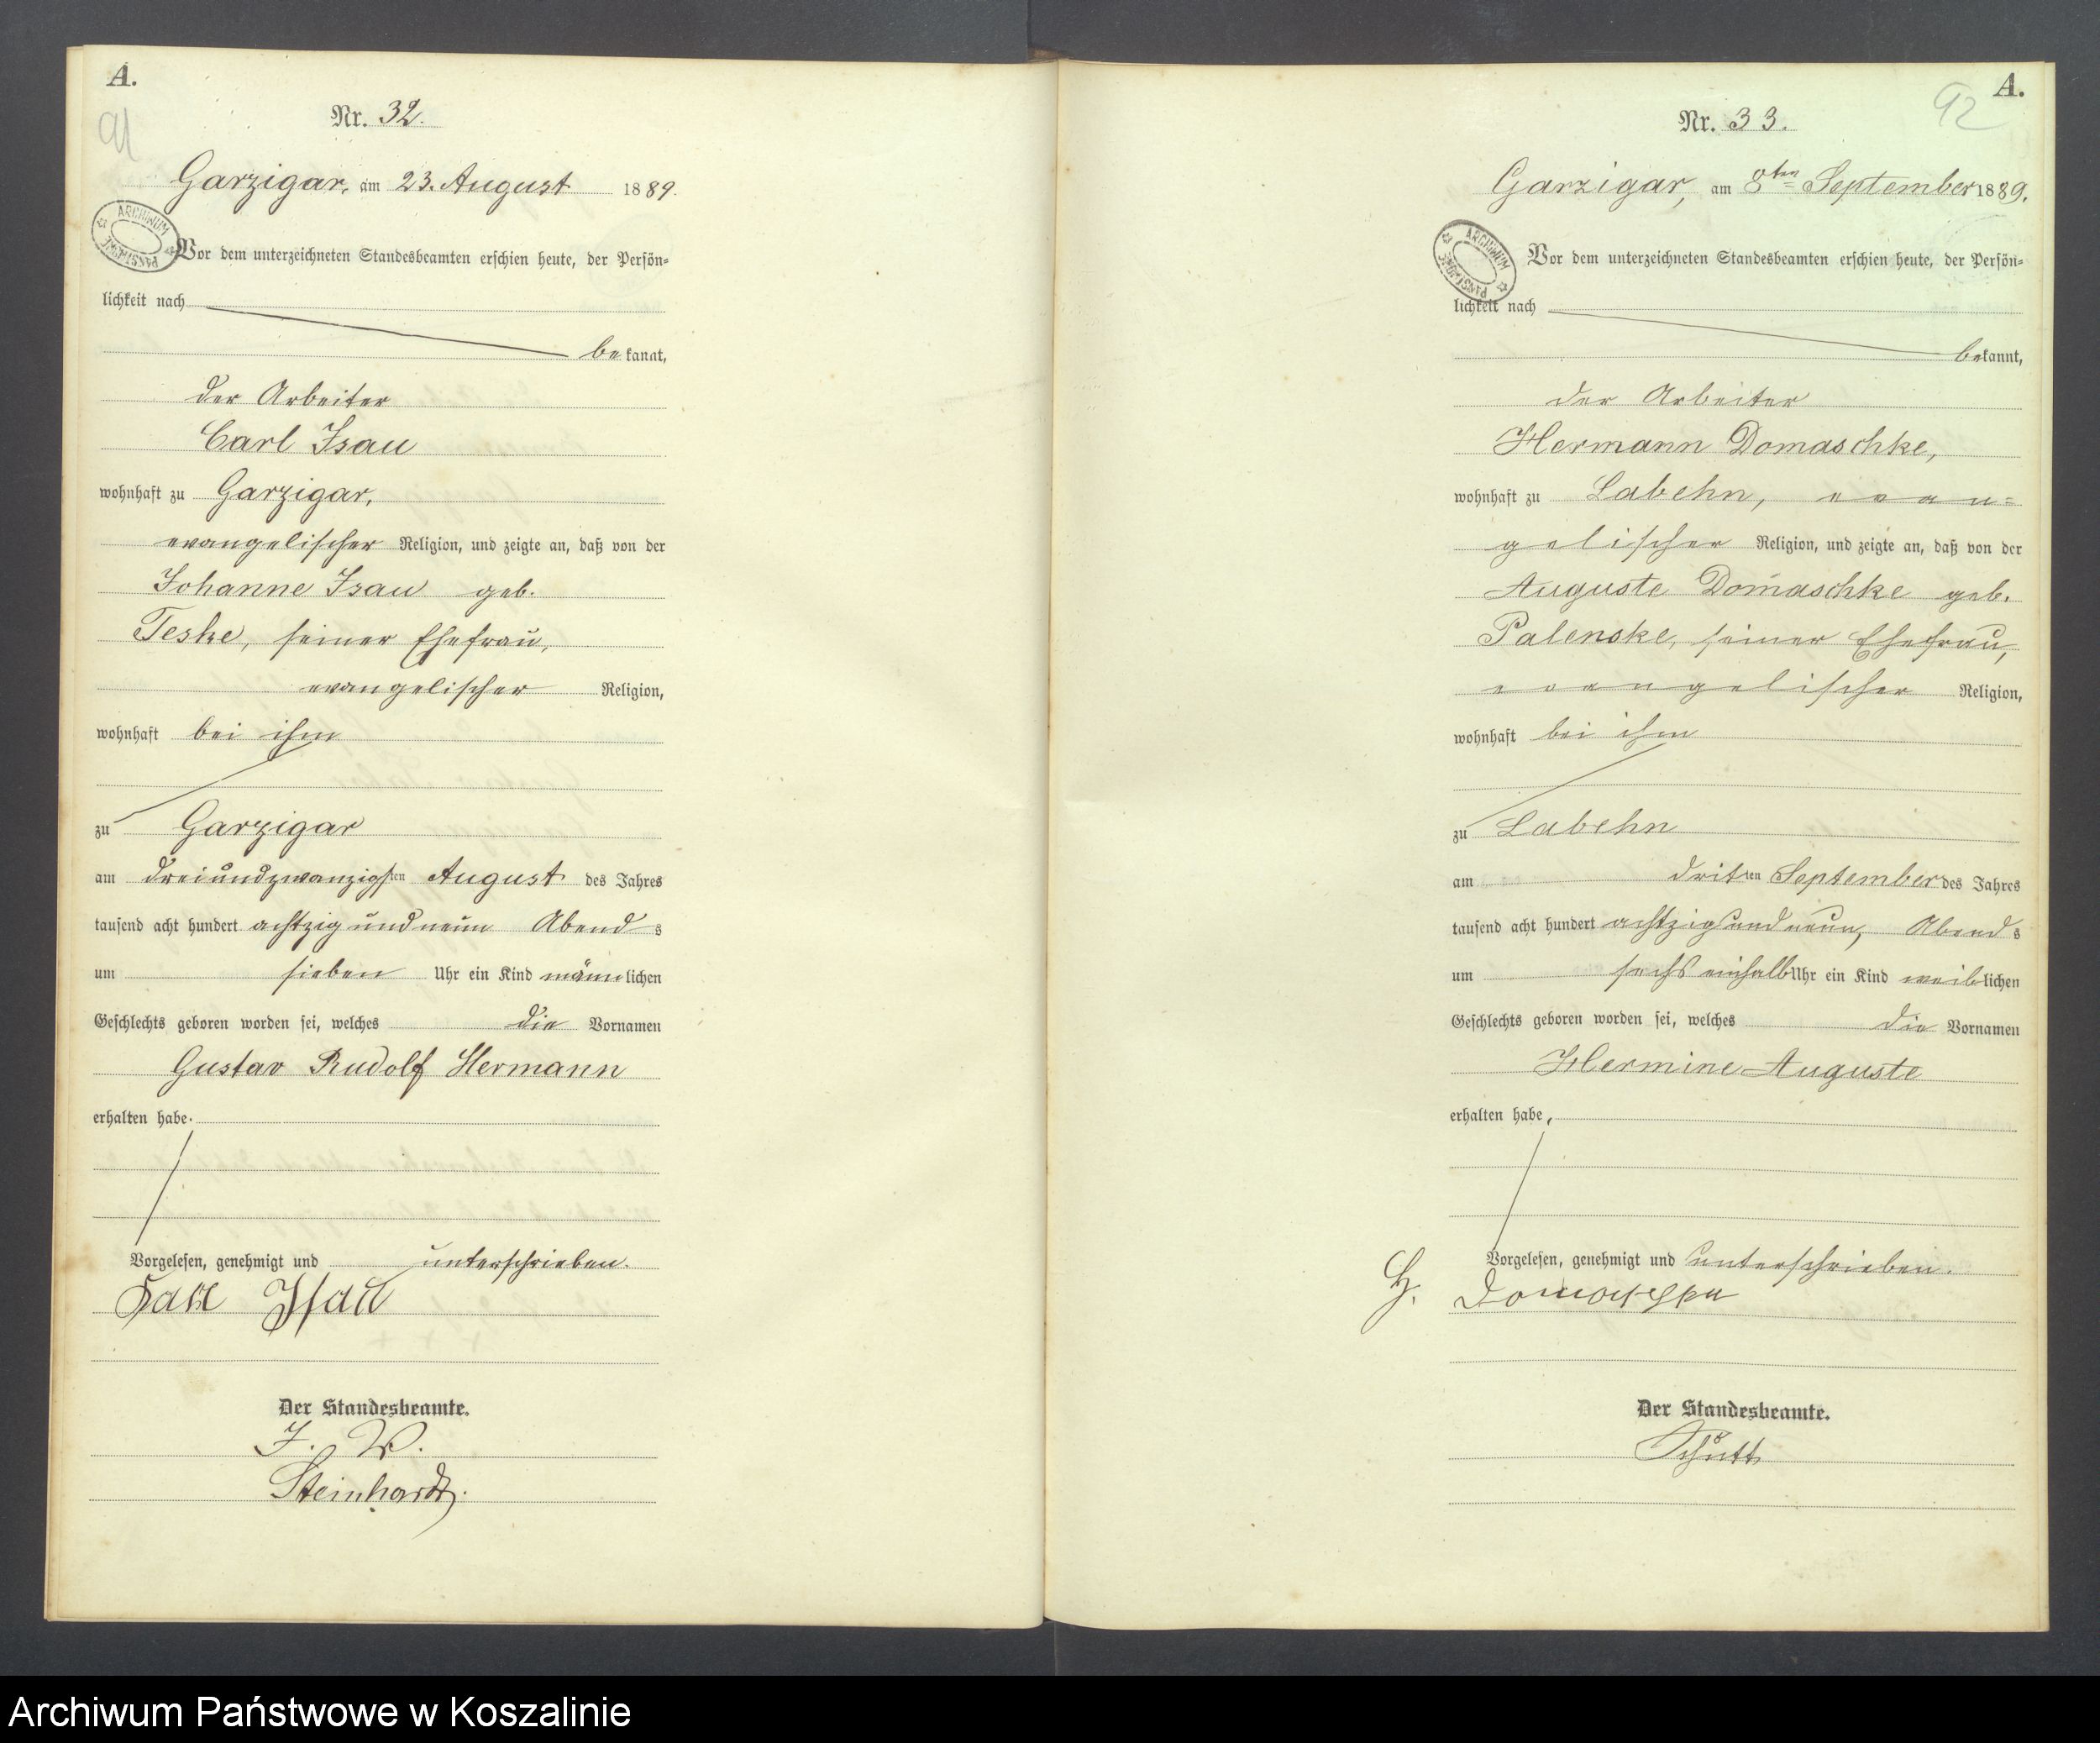 A.
91
Nr. 32.
Garzigar, am 23. August 1889.
ARCHIWUM PAŃSTWOWE
Vor dem unterzeichneten Standesbeamten erschien heute, der Persön=
lichkeit nach
bekannt,
der Arbeiter
Carl Isau
wohnhaft zu Garzigar,
evangelischer Religion, und zeigte an, daß von der
Johanne Isau geb.
Teske, seiner Ehefrau,
evangelischer Religion,
wohnhaft bei ihm
zu Garzigar
am dreiundzwanzigsten August des Jahres
tausend acht hundert achtzig und neun Abends
um sieben Uhr ein Kind männlichen
Geschlechts geboren worden sei, welches die Vornamen
Gustav Rudolf Hermann
erhalten habe.
Vorgelesen, genehmigt und unterschrieben.
Karl Isau
Der Standesbeamte.
I. V.
Steinhardt.
A.
92
Nr. 33.
Garzigar, am 8ten September 1889.
ARCHIWUM PAŃSTWOWE
Vor dem unterzeichneten Standesbeamten erschien heute, der Persön=
lichkeit nach
bekannt,
der Arbeiter
Hermann Domaschke,
wohnhaft zu Labehn, evan=
gelischer Religion, und zeigte an, daß von der
Auguste Domaschke geb.
Palenske, seiner Ehefrau,
evangelischer Religion,
wohnhaft bei ihm
zu Labehn
am dritten September des Jahres
tausend acht hundert achtzig und neun, Abends
um sechs einhalb Uhr ein Kind weiblichen
Geschlechts geboren worden sei, welches die Vornamen
Hermine Auguste
erhalten habe,
Vorgelesen, genehmigt und unterschrieben.
H. Domaschke
Der Standesbeamte.
Schütt
Archiwum Państwowe w Koszalinie